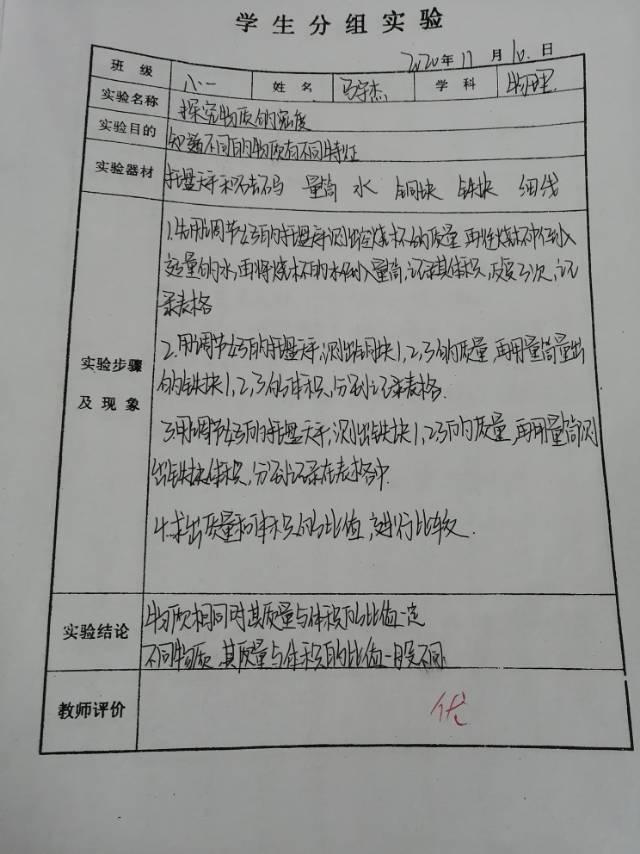 学生分组实验
2020年11月10日
班级 八一 姓名 马宇杰 学科 物理
实验名称 探究物质的密度
实验目的 知道不同的物质有不同特征
实验器材 托盘天平和砝码 量筒 水 铜块 铁块 细线
1.先用调节好的托盘天平测出空烧杯的质量,再往烧杯中倒入
定量的水,再将烧杯的水倒入量筒,记录其体积,反复3次,记
录表格
实验步骤
及现象
2.用调节好的托盘天平,测出铜块1,2,3的质量,再用量筒量出
的铁块1,2,3的体积,分别记录表格.
3.用调节好的托盘天平,测出铁块1,2,3的质量,再用量筒测
出铁块体积,分别记录在表格中.
4.求出质量和体积的比值,进行比较.
实验结论
物质相同时其质量与体积的比值一定
不同物质,其质量与体积的比值一般不同.
教师评价 优